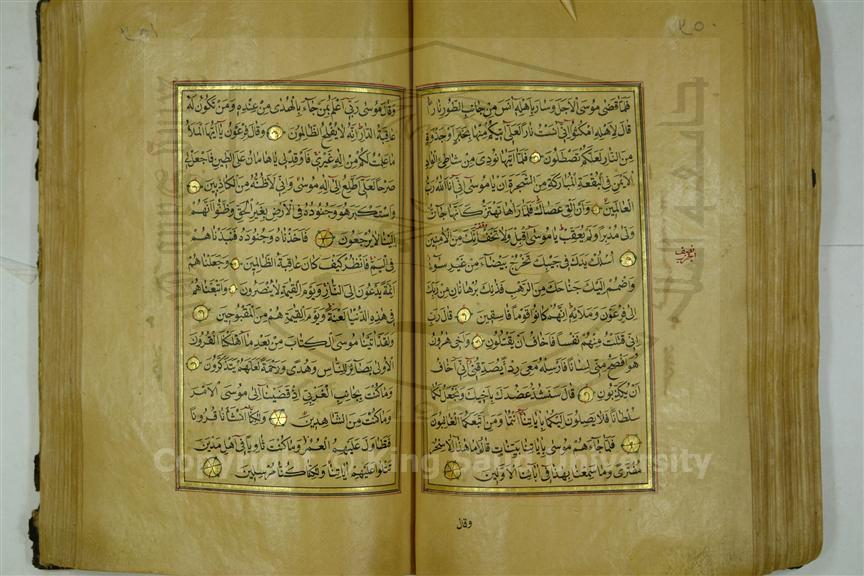 فلما قضى موسى الاجل وسار باهله انس من جانب الطور نارا
قال لاهله امكثوا اني انست نارا لعلي اتيكم منها بخبر او جذوة
من النار لعلكم تصطلون فلما اتيها نودي من شاطئ الواد
الايمن في البقعة المباركة من الشجرة ان يا موسى اني انا الله رب
العالمين وان الق عصاك فلما راها تهتز كانها جان
ولى مدبرا ولم يعقب يا موسى اقبل ولا تخف انك من الامنين
اسلك يدك في جيبك تخرج بيضاء من غير سوء
واضمم اليك جناحك من الرهب فذانك برهانان من ربك
الى فرعون وملائه انهم كانوا قوما فاسقين قال رب
اني قتلت منهم نفسا فاخاف ان يقتلون واخي هرون
هو افصح مني لسانا فارسله معي ردءا يصدقني اني اخاف
ان يكذبون قال سنشد عضدك باخيك ونجعل لكما
سلطانا فلا يصلون اليكما باياتنا انتما ومن اتبعكما الغالبون
فلما جاءهم موسى باياتنا بينات قالوا ما هذا الا سحر
مفترى وما سمعنا بهذا في ابائنا الاولين
وقال
وقال موسى ربي اعلم بمن جاء بالهدى من عنده ومن تكون له
عاقبة الدار انه لا يفلح الظالمون وقال فرعون يا ايها الملأ
ما علمت لكم من اله غيري فاوقد لي يا هامان على الطين فاجعل لي
صرحا لعلي اطلع الى اله موسى واني لاظنه من الكاذبين
واستكبر هو وجنوده في الارض بغير الحق وظنوا انهم
الينا لا يرجعون فاخذناه وجنوده فنبذناهم
في اليم فانظر كيف كان عاقبة الظالمين وجعلناهم
ائمة يدعون الى النار ويوم القيمة لا ينصرون واتبعناهم
في هذه الدنيا لعنة ويوم القيمة هم من المقبوحين
ولقد اتينا موسى الكتاب من بعد ما اهلكنا القرون
الاولى بصائر للناس وهدى ورحمة لعلهم يتذكرون
وما كنت بجانب الغربي اذ قضينا الى موسى الامر
وما كنت من الشاهدين ولكنا انشأنا قرونا
فتطاول عليهم العمر وما كنت ثاويا في اهل مدين
تتلوا عليهم اياتنا ولكنا كنا مرسلين
Copyright © King Saud University